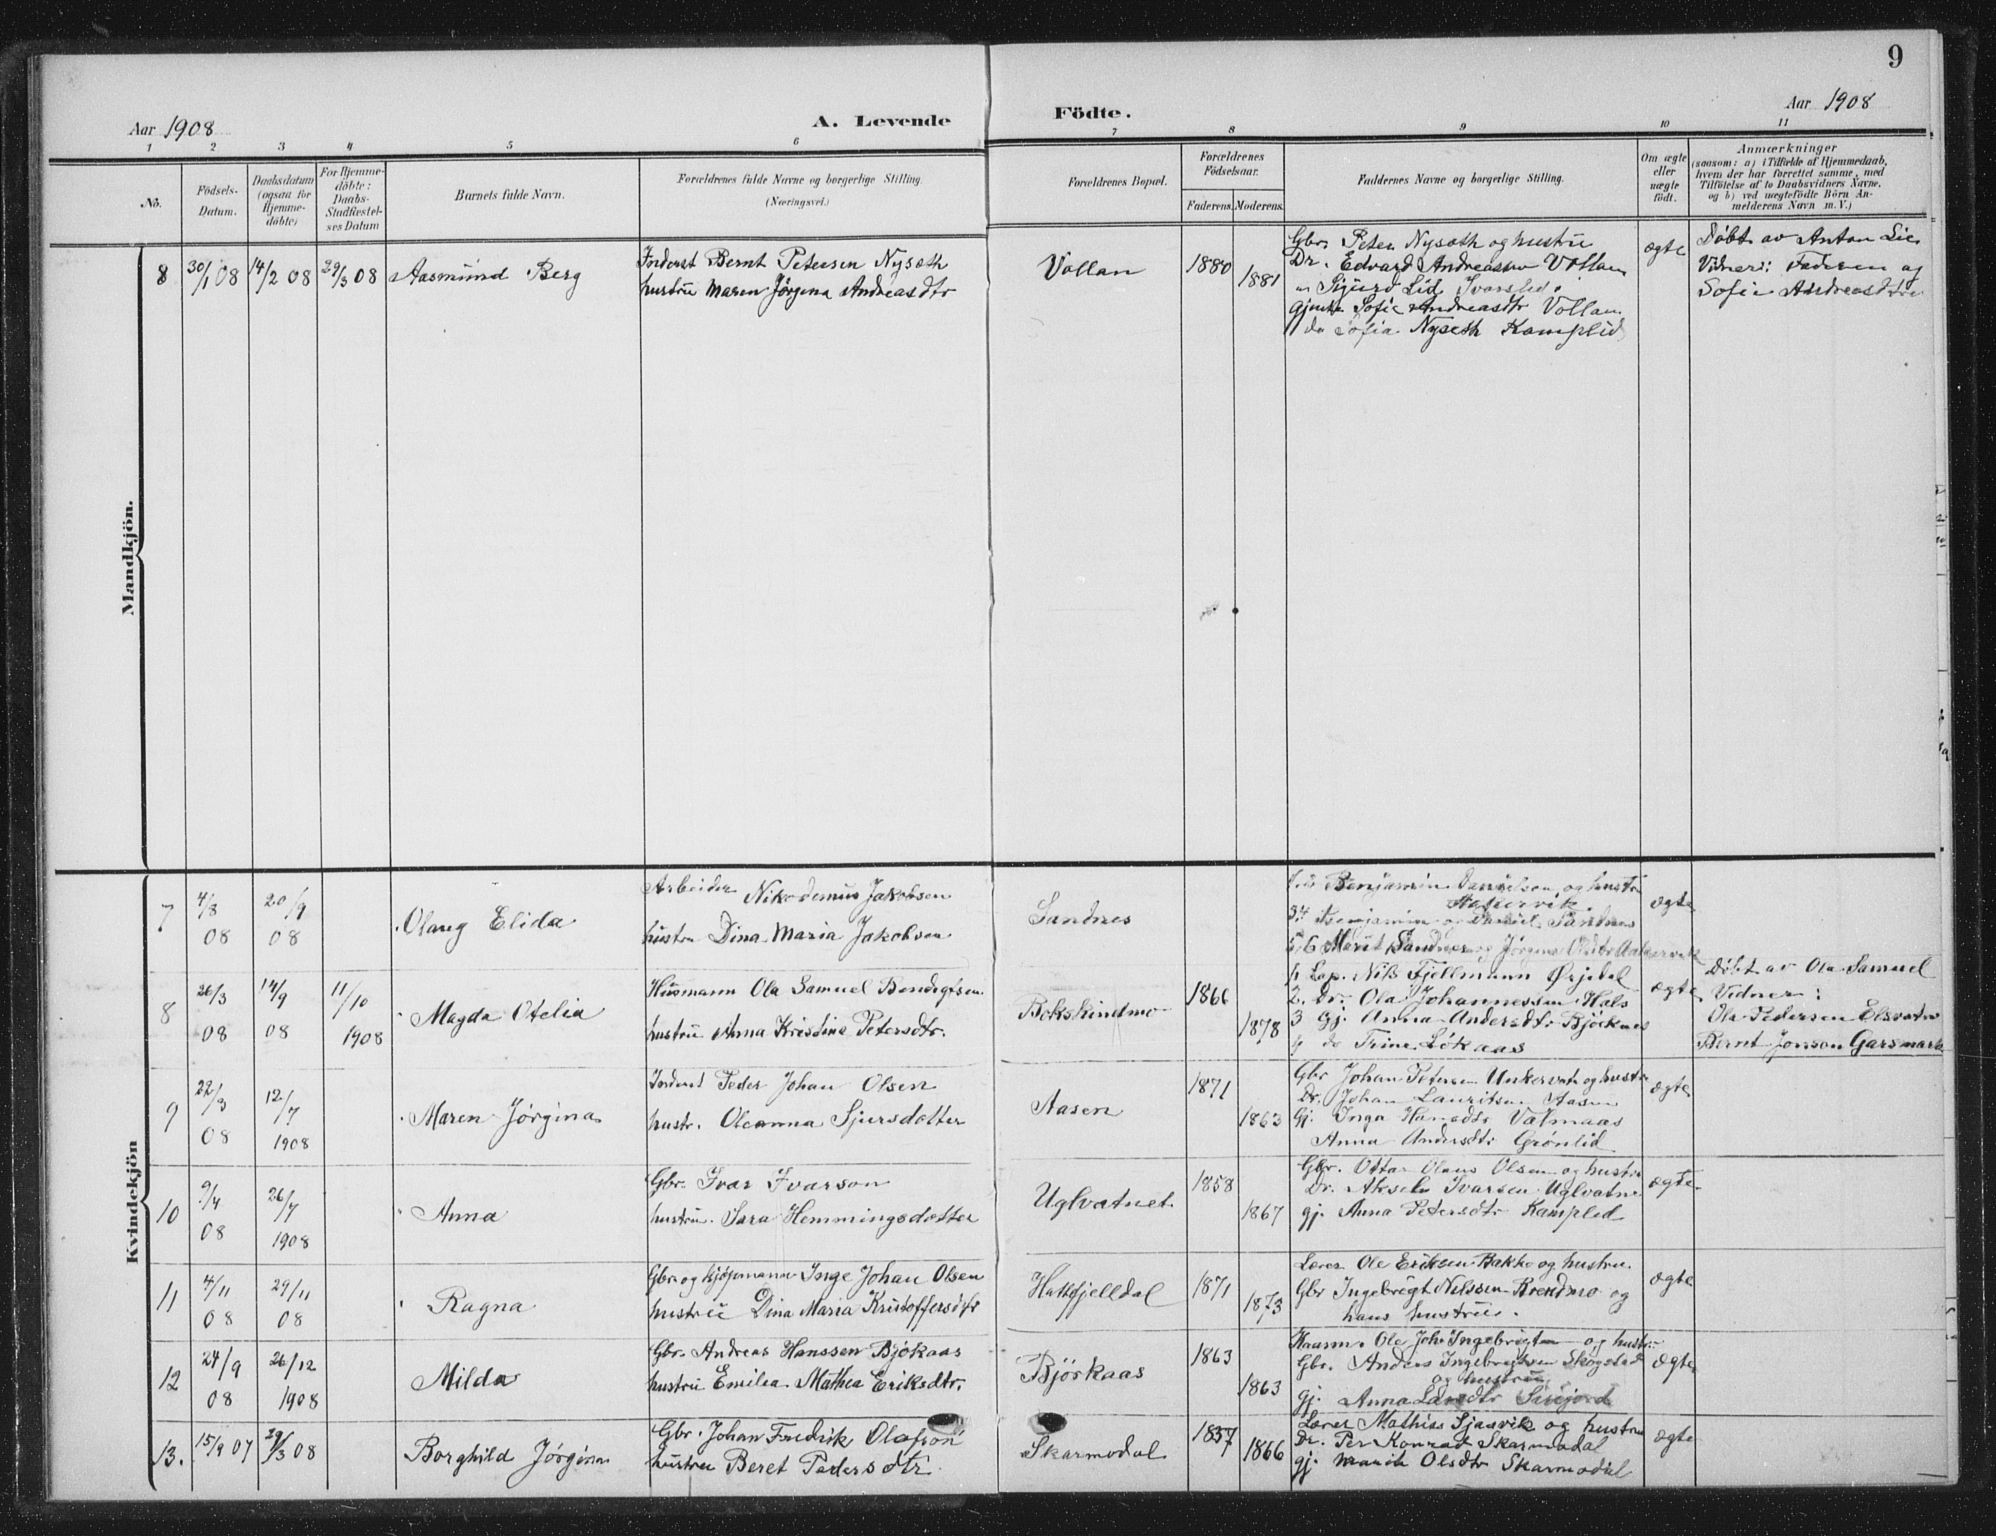 9
Aar 1908
A. Levende
Födte.
Aar 1908
1 2 3 4 5 6 7 8 9 10 11
No.
Födsels-
Datum.
Daabsdatum
(ogsaa for
Hjemme-
döbte)
For Hjemme-
döbte:
Daabs-
Stadfæstel-
ses Datum
Barnets fulde Navn.
Forældrenes fulde Navne og borgerlige Stilling.
(Næringsvei.)
Forældrenes Bopæl.
Forældrenes
Födselsaar.
Faderens. Moderens.
Faddernes Navne og borgerlige Stilling.
Om ægte
eller
uægte
födt.
Anmærkninger
(saasom: a) i Tilfælde af Hjemmedaab,
hvem der har forrettet samme, med
Tilföielse af to Daabsvidners Navne,
og b) ved uægtefödte Börn An-
melderens Navn m. V.)
Mandkjön.
8 30/1 08 14/2 08 29/3 08 Aasmund Berg
Inderst Bernt Petersen Nyseth
hustru Maren Jørgina Andreasdtr
Vollan 1880 1881
Gbr. Peter Nyseth og hustru
Dr. Edvard Andreassen Vollan
Sigurd Lid
Gjente Sofie Andreasdtr Vollan
do Sofia Nyseth Kamplid
ægte
Døbt av Anton Lie
Vidner: Faderen og
Sofie Andreasdtr
Kvindekjön
7 4/8 08 20/9 08 Olaug Elida
Arbeider Nikodemus Jakobsen
hustru Dina Maria Jakobsen
Sandnes
Benjamin Danielsen og hustru
Benjamin og Daniel Sandnes
5,6 Marit Sandnes og Jørgine
ægte
8 26/3 08 14/9 08 11/10 1908 Magda Otelia
Husmann Ola Samuel Bendigtsen
hustru Anna Kristina Petersdtr.
Bokskindmo 1866 1878
1 Lap. Nils Fjellmann Ørjedal
2. Dr. Ola Johannessen Hals
3 Gj. Anna Andersdtr Bjørknes
4 do Trine Løkaas
ægte
Døbt av Ola Samuel
Vidner:
Ola Pedersen Elsvatn
Bernt Jonson Garsmark
9 22/3 08 12/7 1908 Maren Jørgina
Inderst Peder Johan Olsen
hustr. Oleanna Sjursdotter
Aasen 1871 1863
Gbr Johan Petersen Unkervatn og hustru
Dr. Johan Lauritsen Aasen
Gj. Inga Hansdtr Valmaas
Anna Andersdtr Grønlid
ægte
10 9/4 08 26/7 1908 Anna
Gbr. Ivar Ivarson
hustru. Sara Hemmingsdotter
Uglvatnet 1858 1867
Gbr. Ottar Olaus Olsen og hustru
Dr. Aksel Ivarsen Uglvatne
gj. Anna Petersdtr Kamplid
ægte
11 4/11 08 29/11 08 Ragna
Gbr. og kjøpmann Inge Johan Olsen
hustru Dina Maria Kristoffersdtr
Hatfjelldal 1871 1873
Lærer Ole Eriksen Bakke og hustru.
Gbr Ingebrigt Nilssen Brendmo og
hans hustru.
ægte
12 24/9 08 26/12 1908 Milda
Gbr. Andreas Hanssen Bjökaas
hustru Emilia Mathea Eriksdtr.
Bjørkaas 1863 1863
Kaarm. Ole Joh. Ingebrigtsen og hustru
Gbr. Anders Ingebrigtsen Skogstad
og hustru
gj. Anna Larsdtr
ægte
13. 15/9 07 29/3 08 Borghild Jörgina
Gbr. Johan Fredrik Olafson
hustru Beret Pedersdtr
Skarmodal 1857 1866
Lærer Mathias Sjaavik og hustru
Dr. Per Konrad Skarmodal
gj. Marith Olsdtr Skarmodal
ægte